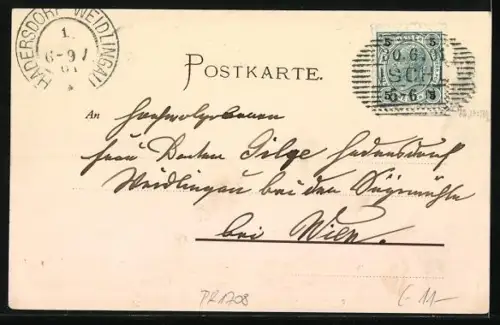 HADERSDORF-WEIDLINGAU
1.
6-9/
01
5 5
30.6.01
ISCHL
5 6-6 5
POSTKARTE.
An Hochwolgeboren
Frau Silge Hadersdorf
Weidlingau bei der Sägemühle
bei Wien.
PR1708
11-